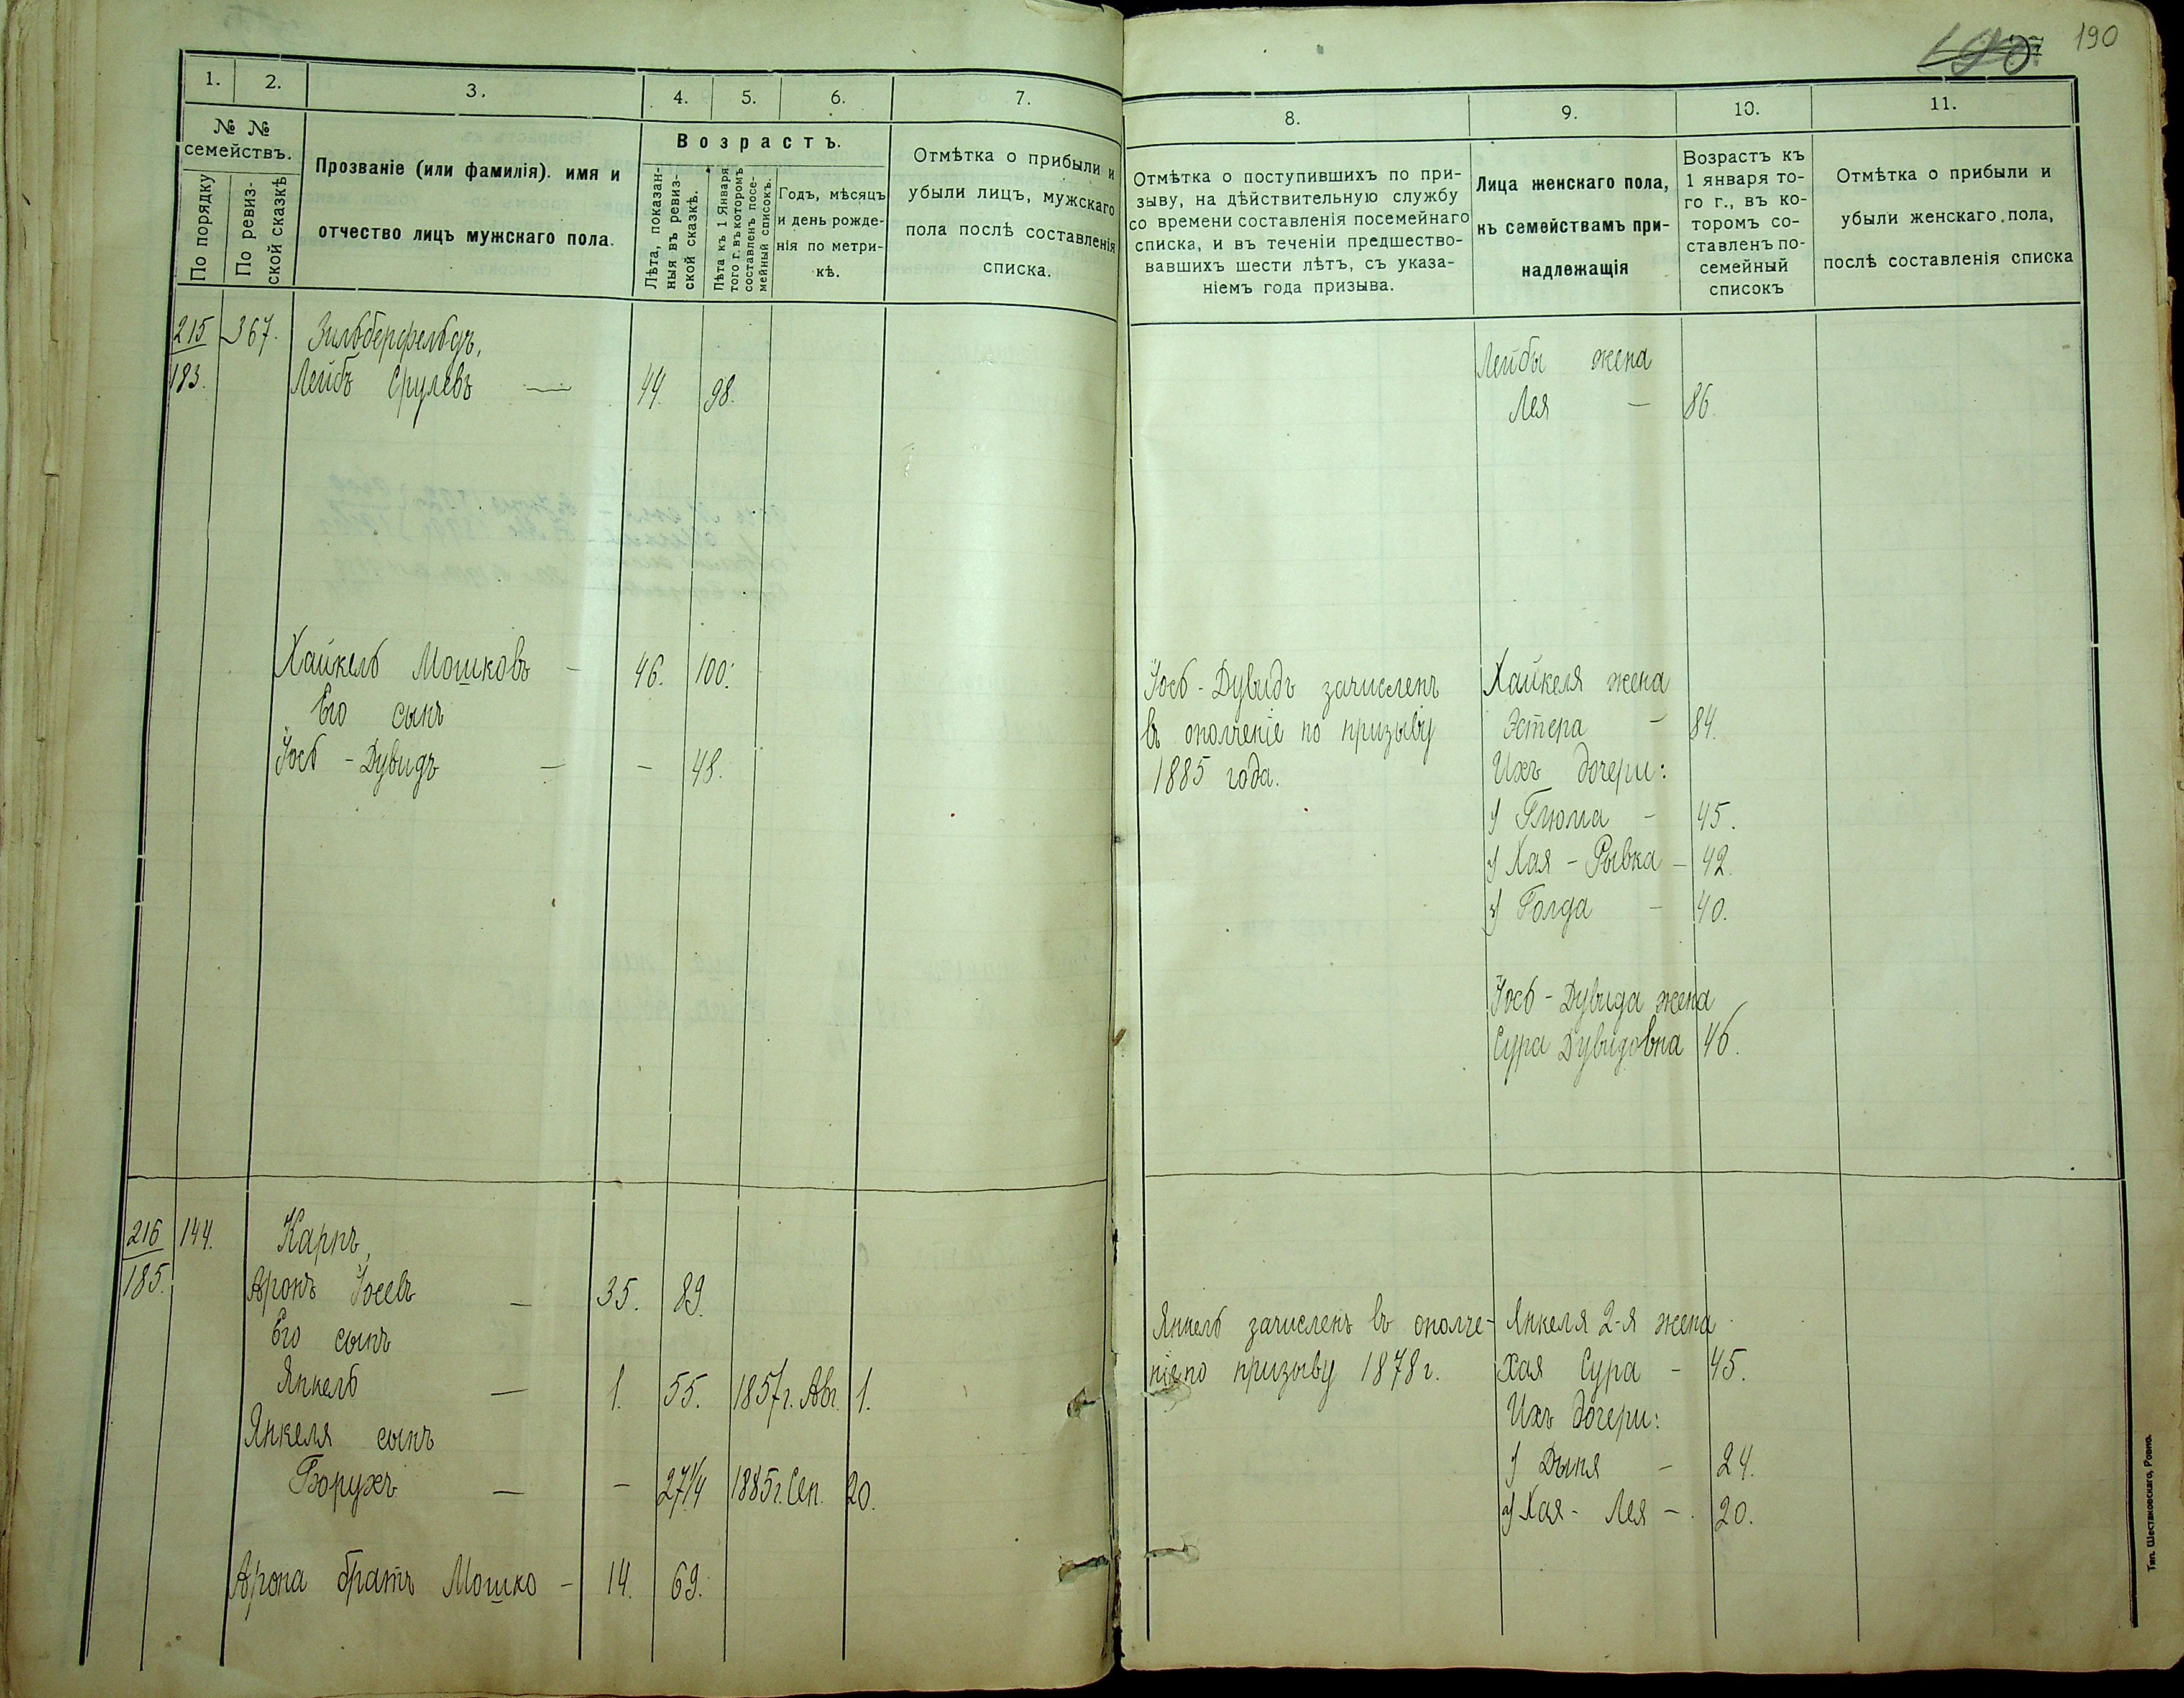 190
190
1. 2. 3. 4. 5. 6. 7.
№ №
семействъ.
По порядку
По ревиз-
ской сказкѣ
Прозваніе (или фамилія). имя и
отчество лицъ мужскаго пола.
Возрастъ.
Лѣта, показан-
ныя въ ревиз-
ской сказкѣ.
Лѣта къ 1 Января
того г. въ которомъ
составленъ посе-
мейный списокъ.
Годъ, мѣсяцъ
и день рожде-
нія по метри-
кѣ.
Отмѣтка о прибыли и
убыли лицъ, мужскаго
пола послѣ составленія
списка.
215 367. Зильберфельдъ,
183. Лейбъ Срулевъ — 44. 98.
Хайкель Мошковъ - 46. 100.
Его сынъ
Іось - Дувидъ — — 48.
216 144. Карпъ,
185. Аронъ Іосевъ — 35. 89.
Его сынъ
Янкель — 1. 55. 1857г. Авг. 1.
Янкеля сынъ
Борухъ — - 27 1/4 1885г. Сен. 20.
Арона братъ Мошко - 14. 69.
8. 9. 10. 11.
Отмѣтка о поступившихъ по при-
зыву, на дѣйствительную службу
со времени составленія посемейнаго
списка, и въ теченіи предшество-
вавшихъ шести лѣтъ, съ указа-
ніемъ года призыва.
Лица женскаго пола,
къ семействамъ при-
надлежащія
Возрастъ къ
1 января то-
го г., въ ко-
торомъ со-
ставленъ по-
семейный
списокъ
Отмѣтка о прибыли и
убыли женскаго пола,
послѣ составленія списка
Лейбы жена
Лея — 86.
Іось - Дувидъ зачисленъ
въ ополченіе по призыву
1885 года.
Хайкеля жена
Эстера - 84.
Ихъ дочери:
1) Блюма - 45.
2) Хая - Рывка - 42.
3) Голда - 40.
Іось - Дувида жена
Сура Дувидовна 46.
Янкель зачисленъ въ ополче-
ніе по призыву 1878 г.
Янкеля 2-я жена
Хая Сура - 45.
Ихъ дочери:
1) Дыня - 24.
2) Хая - Лея - 20.
Тип. Шестаковскаго, Ровно.